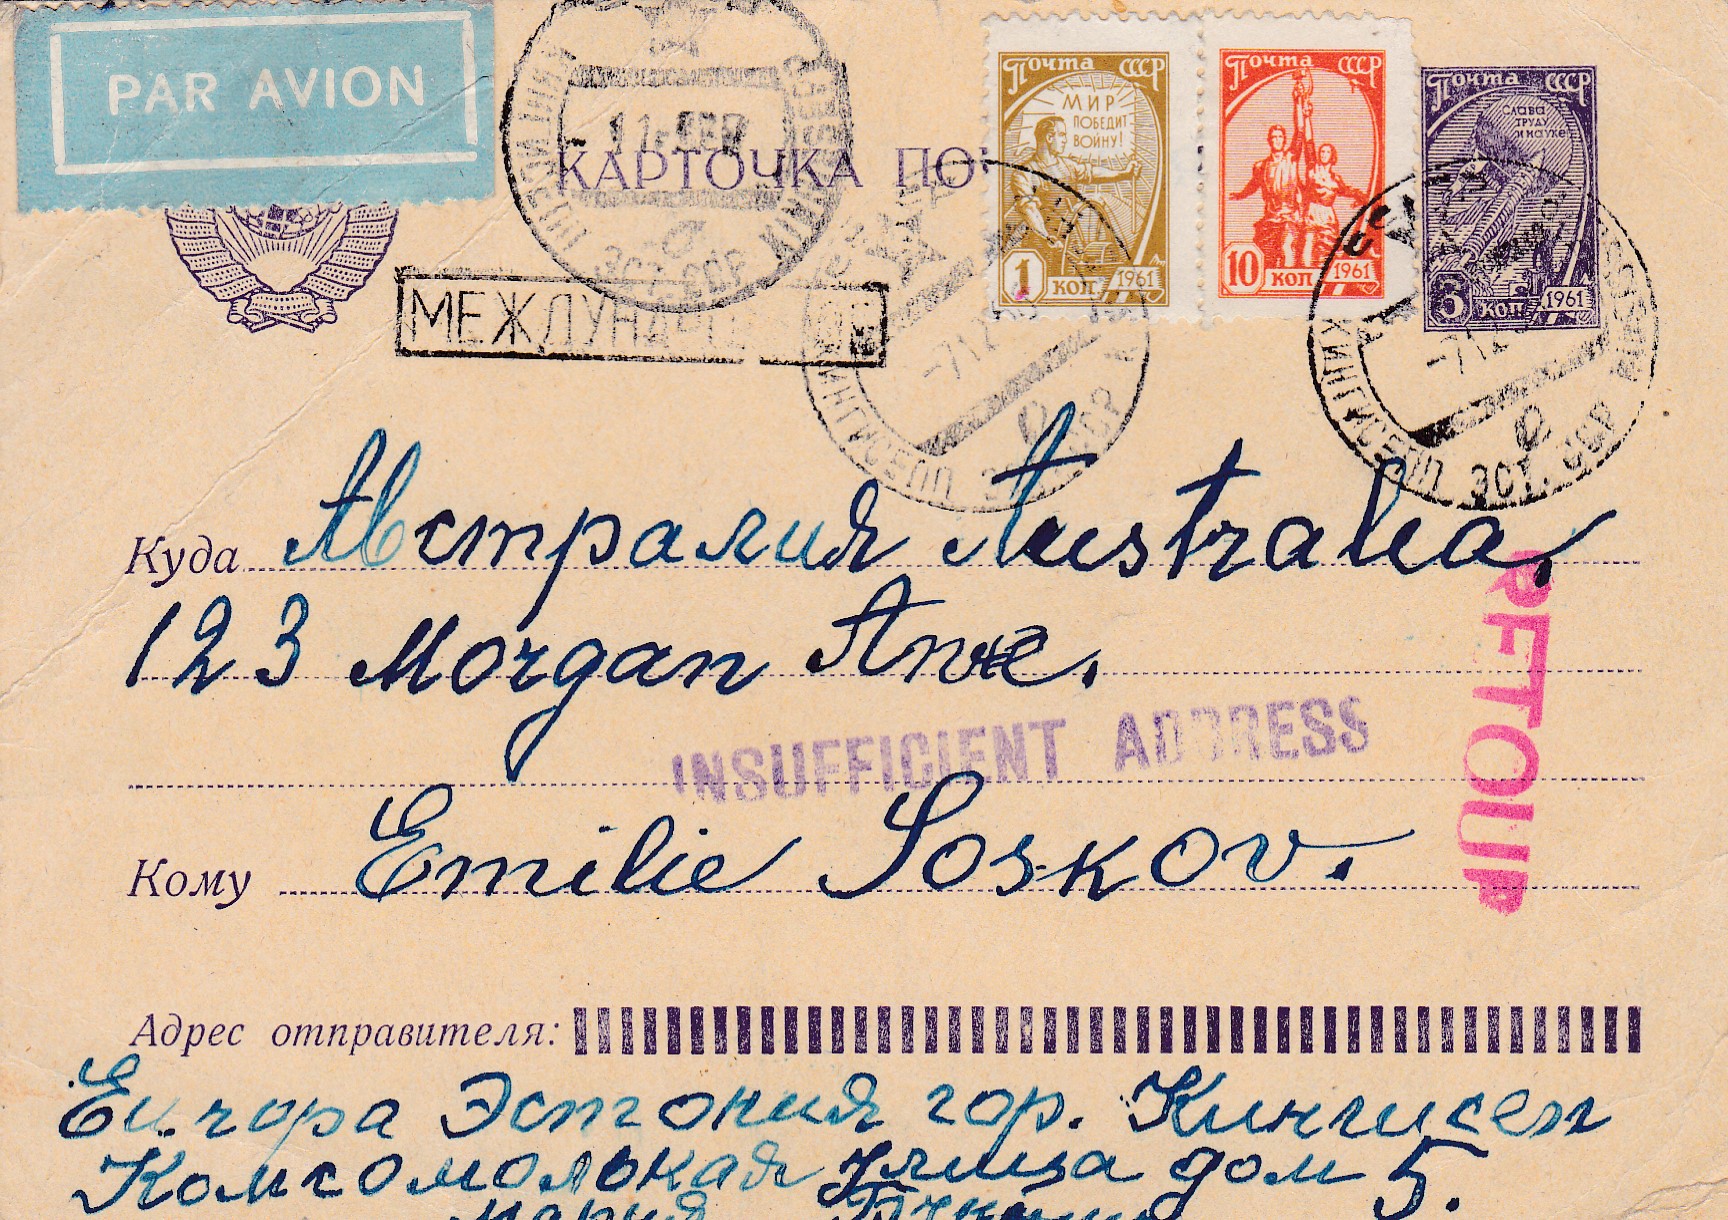 PAR AVION
КАРТОЧКА ПО
Почта СССР
МИР
ПОБЕДИТ
ВОЙНУ!
1 коп 1961
Почта СССР
10 коп 1961
Почта СССР
СЛАВА
ТРУДУ
И НАУКЕ
3 коп 1961
МЕЖДУНАРО
КИНГИСЕПП ЭСТ. ССР
Куда Австралия Australia,
123 Morgan
INSUFFICIENT ADDRESS
RETOUR
Кому Emilie Soskov.
Адрес отправителя:
Эстония гор. Кингисепп
Комсомольская Улица дом 5.
Мария